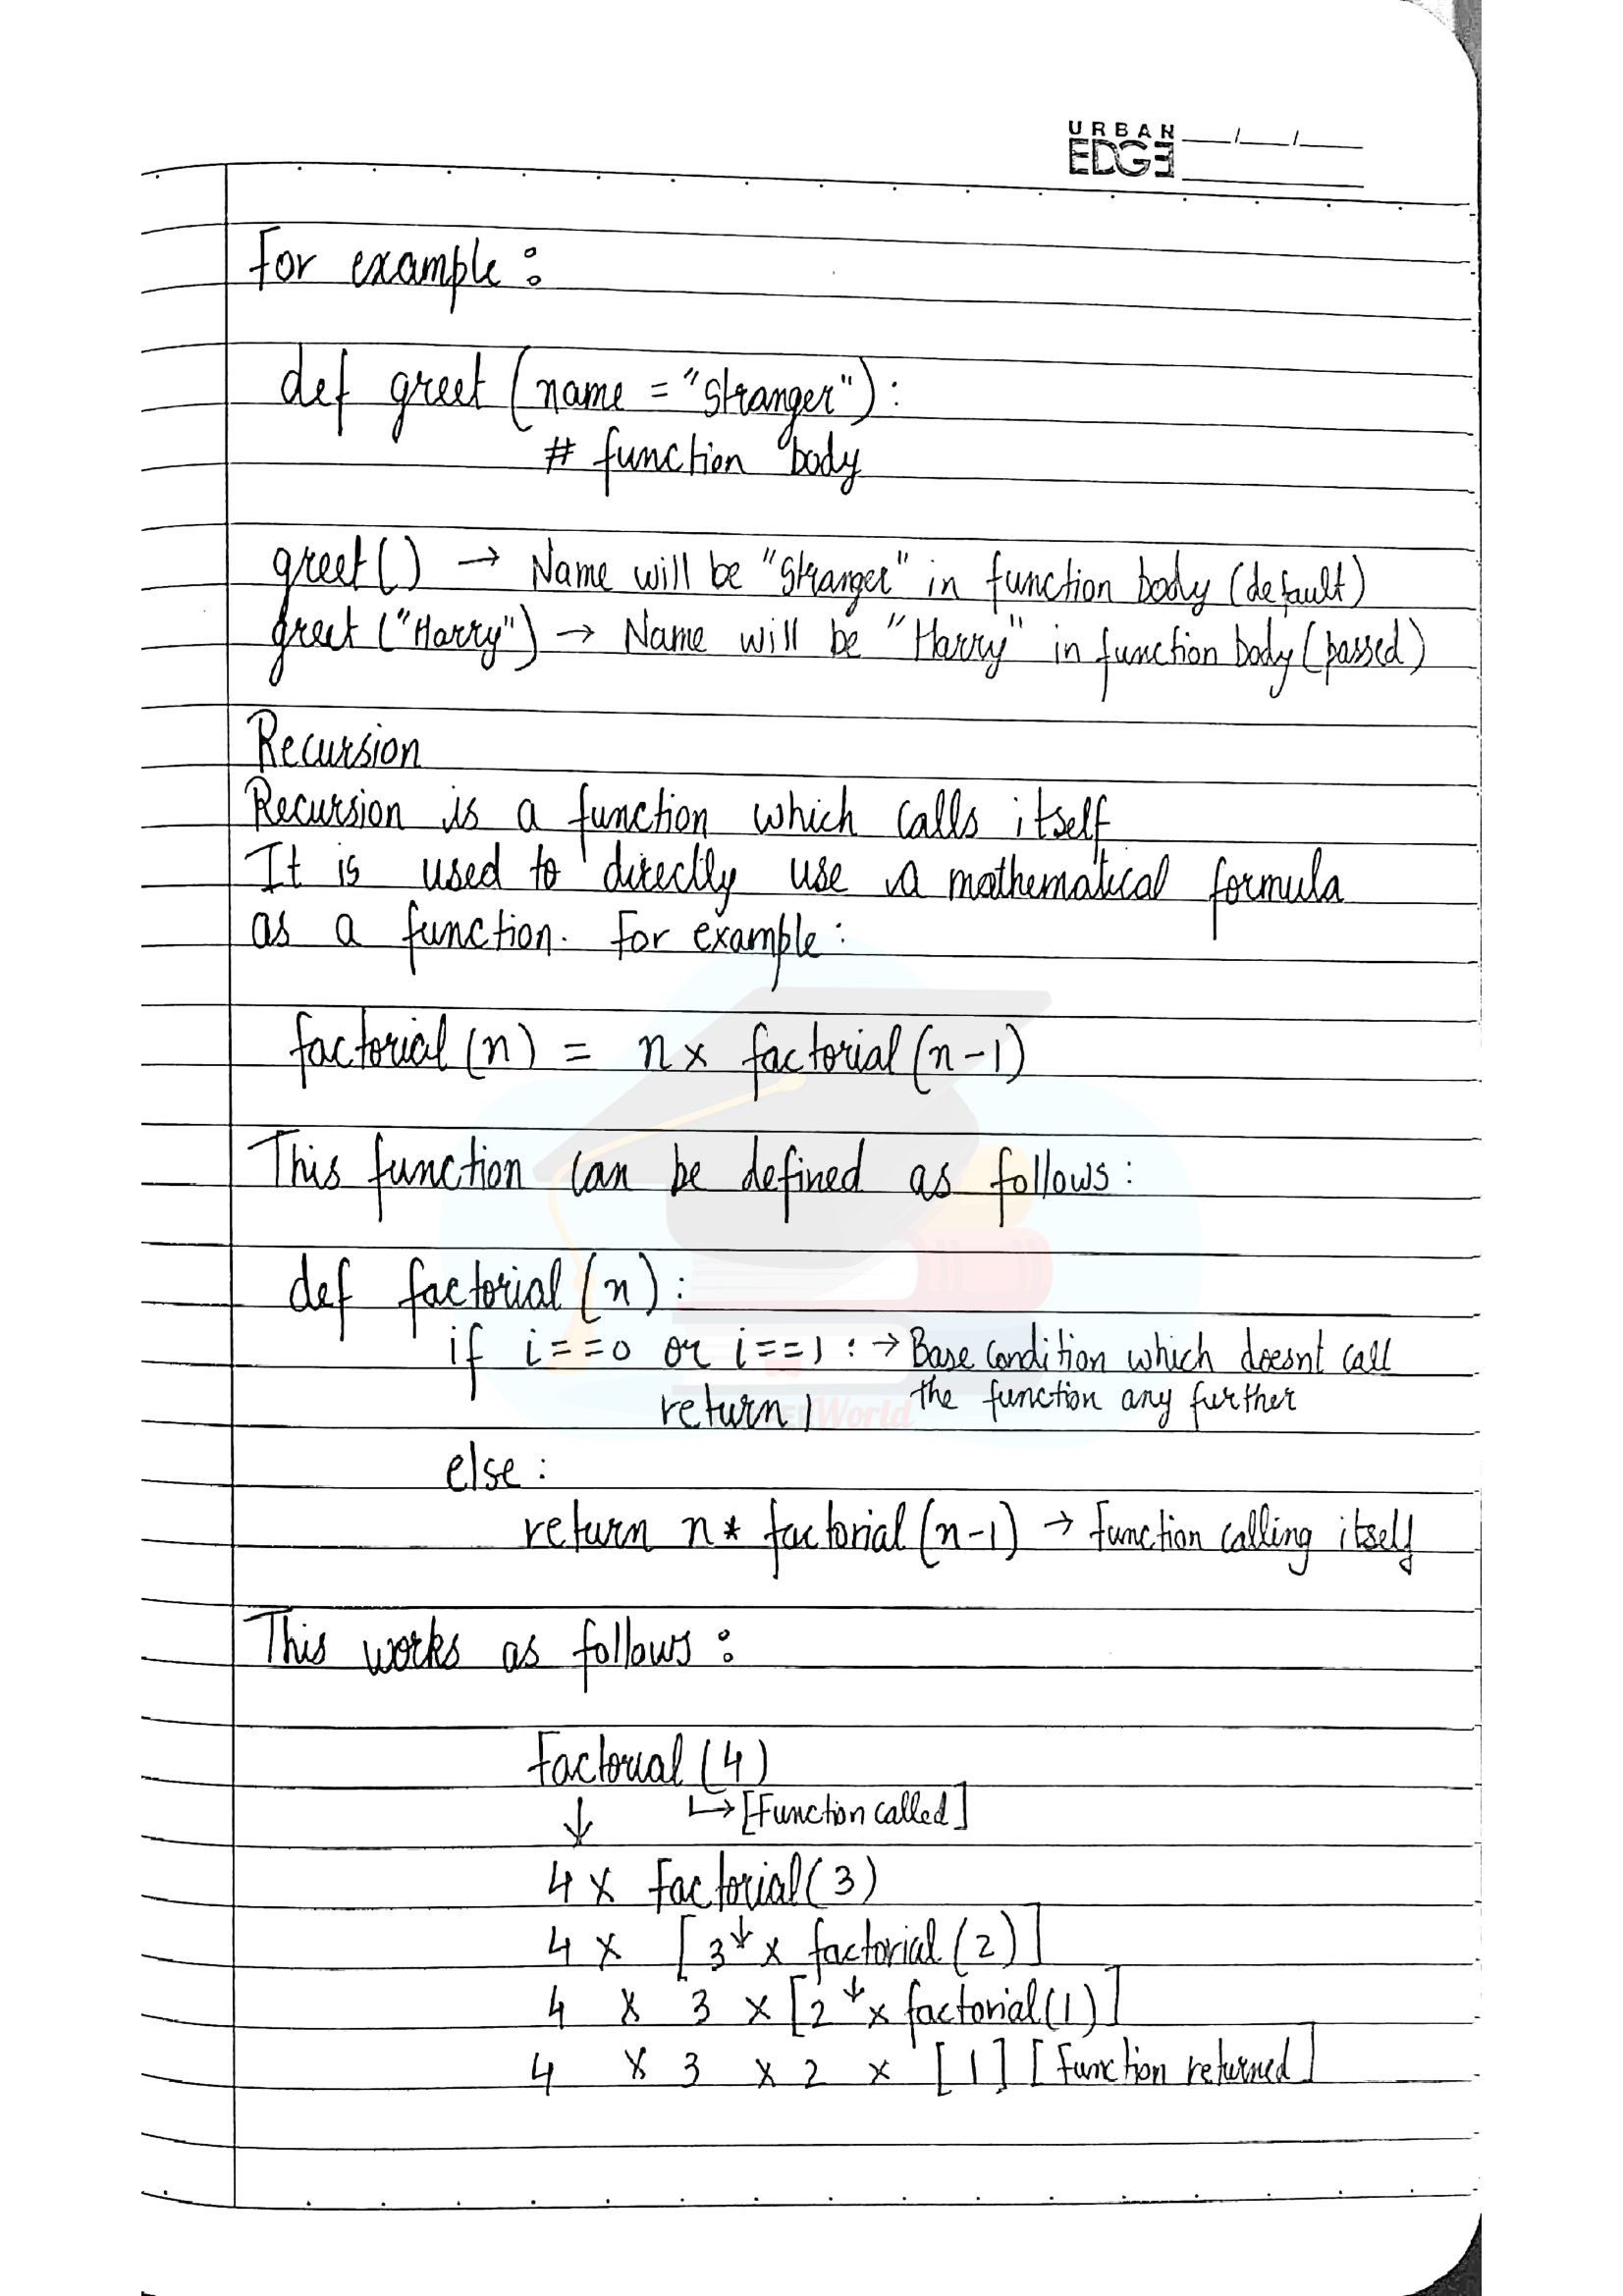 URBAN
EDGE
For example:
def greet (name = "Stranger"):
# function body
greet() → Name will be "Stranger" in function body (default)
greet ("Harry") → Name will be "Harry" in function body (passed)
Recursion
Recursion is a function which calls itself
It is used to directly use a mathematical formula
as a function. For example:
factorial (n) = n × factorial (n-1)
This function can be defined as follows:
def factorial (n):
if i==0 or i==1: → Base condition which doesnt call
the function any further
return 1
World
else:
return n* factorial (n-1) → Function calling itself
This works as follows:
Factorial (4)
↓ ↳ [Function called]
4 × Factorial (3)
4 × [3 ↓ × factorial (2)]
4 × 3 × [2 ↓ × factorial (1)]
4 × 3 × 2 × [1] [Function returned]